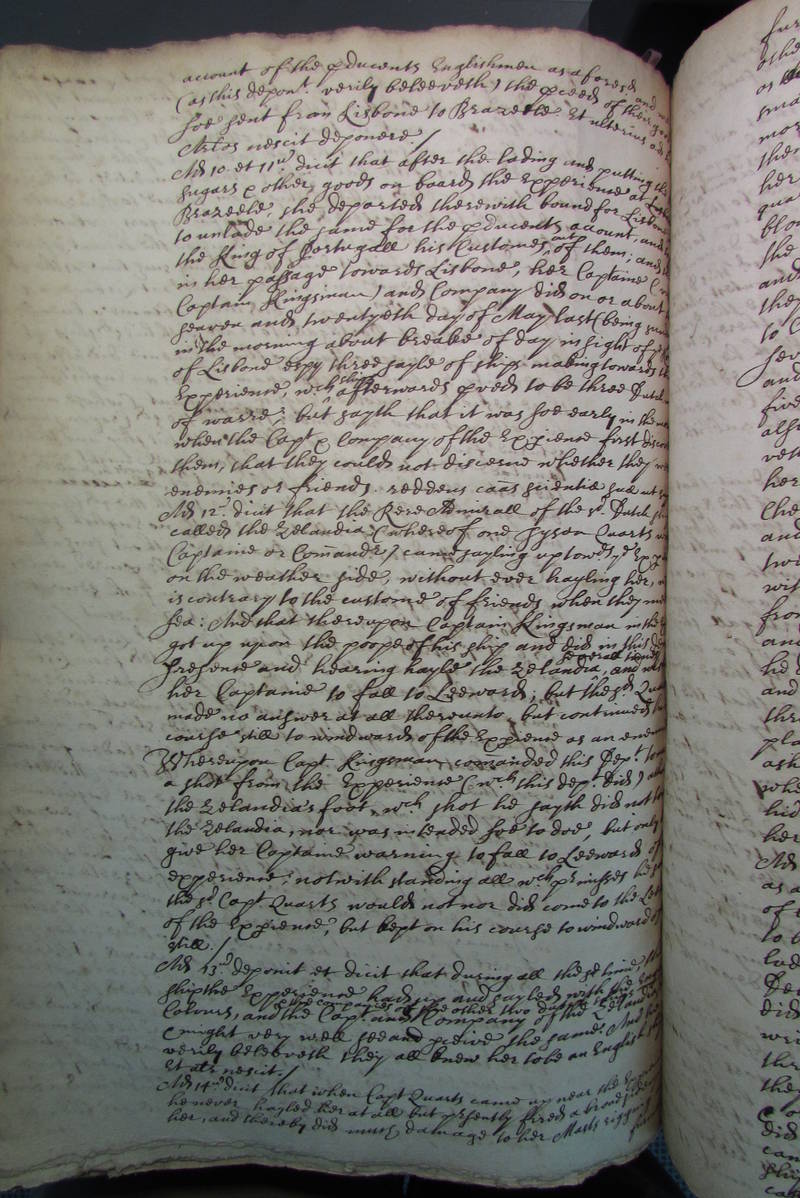 account of the pducents Englishmen as aforesd and
(as this depont verily beleeveth) the pceeds of their
soe sent from Lisbone to Brazeele Et ulterius ad
Arlos nescit deponere /
Ad 10 et 11um dicit that after the lading and putting the
sugars & other goods on board the Experience at
Brazeele, she departed therewith bound for Lisbone
to unlade the same for the pducents account, and
the King of Portugall his Customes out of them; and
in her passage towards Lisbone, her Captaine
Captain Kingsman) and Company did on or about
seaven and twentyeth day of May last (being
in the morning about breake of day in sight of
of Lisbone espy three sayle of ships making towards
Experience, wch ships afterwards pved to be three Dutch
of warre; but sayth that it was soe early in the
when the Capt & Company of the Expience first
them, that they could not discerne whether they
enemies or friends. reddens cãas scientiæ suæ ut
Ad 12um dicit that the Rere Admirall of the sd Dutch
called the Zelandia (whereof one Syson Quarts
Captaine or Comander) came sayling up towds ye
on the weather side, without ever hayling her,
is contrary to the custome of friends when they
sea: And that thereupon Captain Kingsman
got up upon the poope of his ship and did in this
presence and hearing hayle the Zelandia severall times, and
her Captaine to fall to Leeward; but the sd
made no answer at all thereunto but continued
course still to windward of the Expience as an
Whereupon Capt Kingsman comanded this Dept
a shot from the Experience (wch this dept did)
the Zelandias foot, wch shot he sayth did not
the Zelandia, nor was intended soe to doe, but only
give her Captaine warning to fall to Leeward of
experience; notwithstanding all wch pmisses he
the sd Capt Quarts would not nor did come to the
of the Expience, but kept on his course to windward
still /
Ad 13um deponit et dicit that during all the sd time,
ship the Experience had up and sayled with the
Colours, and the Capt and Company of the Zelandia & the companies of the other two Dutch
might very well see and pceive the same: And
verily beleeveth they all knew her to be an English
Et alr nescit /
Ad 14um dicit that when Capt Quarts came up near the
he never hayled her at all but psently fired a broad
her, and thereby did much damage to her Masts rigging